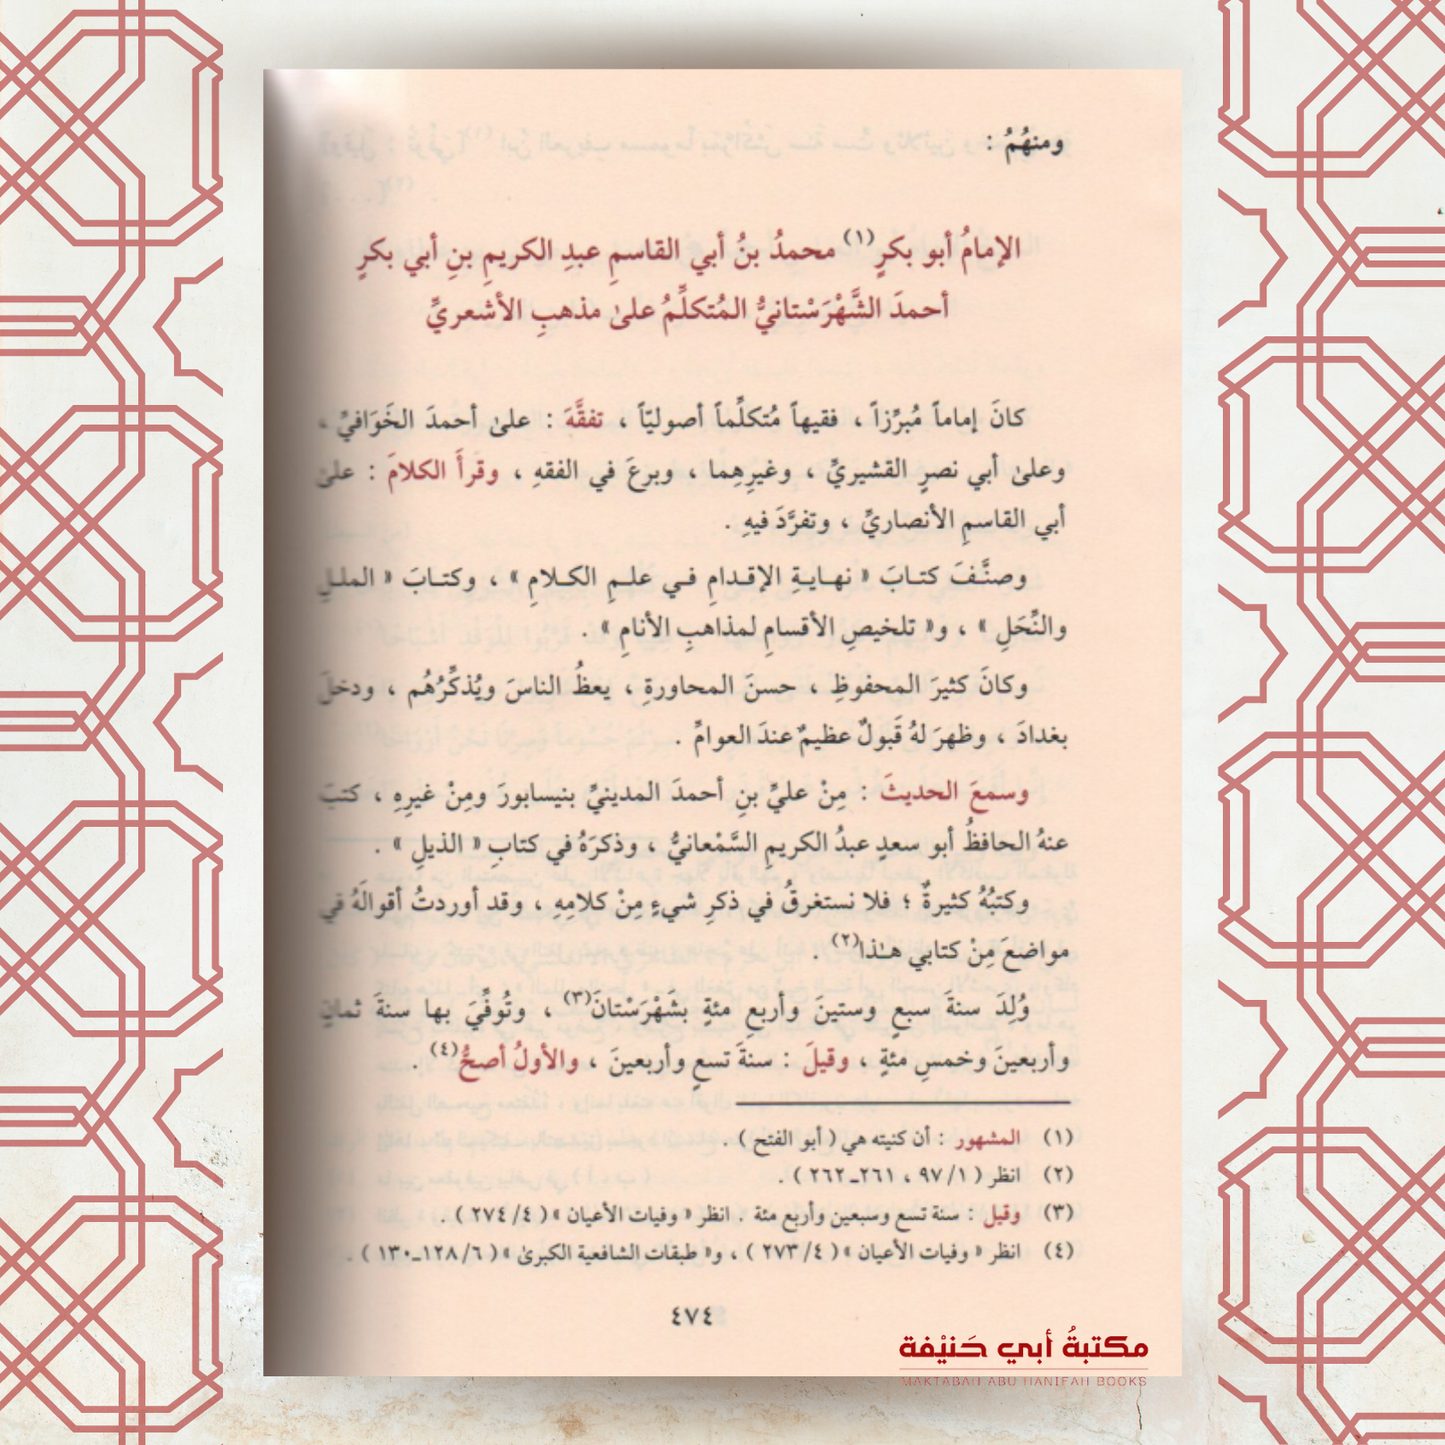 ومنهُمُ :
الإمامُ أبو بكرٍ(١) محمدُ بنُ أبي القاسمِ عبدِ الكريمِ بنِ أبي بكرٍ
أحمدَ الشَّهْرَسْتانيُّ المُتكلِّمُ علىٰ مذهبِ الأشعريِّ
كانَ إماماً مُبرِّزاً ، فقيهاً مُتكلِّماً أصوليّاً ، تفقَّهَ : علىٰ أحمدَ الخَوَافيِّ ،
وعلىٰ أبي نصرٍ القشيريِّ ، وغيرِهِما ، وبرعَ في الفقهِ ، وقرأَ الكلامَ : علىٰ
أبي القاسمِ الأنصاريِّ ، وتفرَّدَ فيهِ .
وصنَّفَ كتابَ « نهايةِ الإقدامِ في علمِ الكلامِ » ، وكتابَ « المللِ
والنِّحَلِ » ، و« تلخيصِ الأقسامِ لمذاهبِ الأنامِ » .
وكانَ كثيرَ المحفوظِ ، حسنَ المحاورةِ ، يعظُ الناسَ ويُذكِّرُهُم ، ودخلَ
بغدادَ ، وظهرَ لهُ قَبولٌ عظيمٌ عندَ العوامِّ .
وسمعَ الحديثَ : مِنْ عليِّ بنِ أحمدَ المدينيِّ بنيسابورَ ومِنْ غيرِهِ ، كتبَ
عنهُ الحافظُ أبو سعدٍ عبدُ الكريمِ السَّمْعانيُّ ، وذكرَهُ في كتابِ « الذيلِ » .
وكتبُهُ كثيرةٌ ؛ فلا نستغرقُ في ذكرِ شيءٍ مِنْ كلامِهِ ، وقد أوردتُ أقوالَهُ في
مواضعَ مِنْ كتابي هـٰذا(٢) .
وُلِدَ سنةَ سبعٍ وستينَ وأربعِ مئةٍ بشَهْرَسْتانَ(٣) ، وتُوفِّيَ بها سنةَ ثمانٍ
وأربعينَ وخمسِ مئةٍ ، وقيلَ : سنةَ تسعٍ وأربعينَ ، والأولُ أصحُّ(٤) .
(١) المشهور : أن كنيته هي ( أبو الفتح ) .
(٢) انظر ( ١/ ٩٧ ، ٢٦١ـ٢٦٢ ) .
(٣) وقيل : سنة تسع وسبعين وأربع مئة . انظر « وفيات الأعيان » ( ٤/ ٢٧٤ ) .
(٤) انظر « وفيات الأعيان » ( ٤/ ٢٧٣ ) ، و« طبقات الشافعية الكبرىٰ » ( ٦/ ١٢٨ـ١٣٠ ) .
٤٧٤
مكتبةُ أبي حَنيْفة
MAKTABAH ABU HANIFAH BOOKS